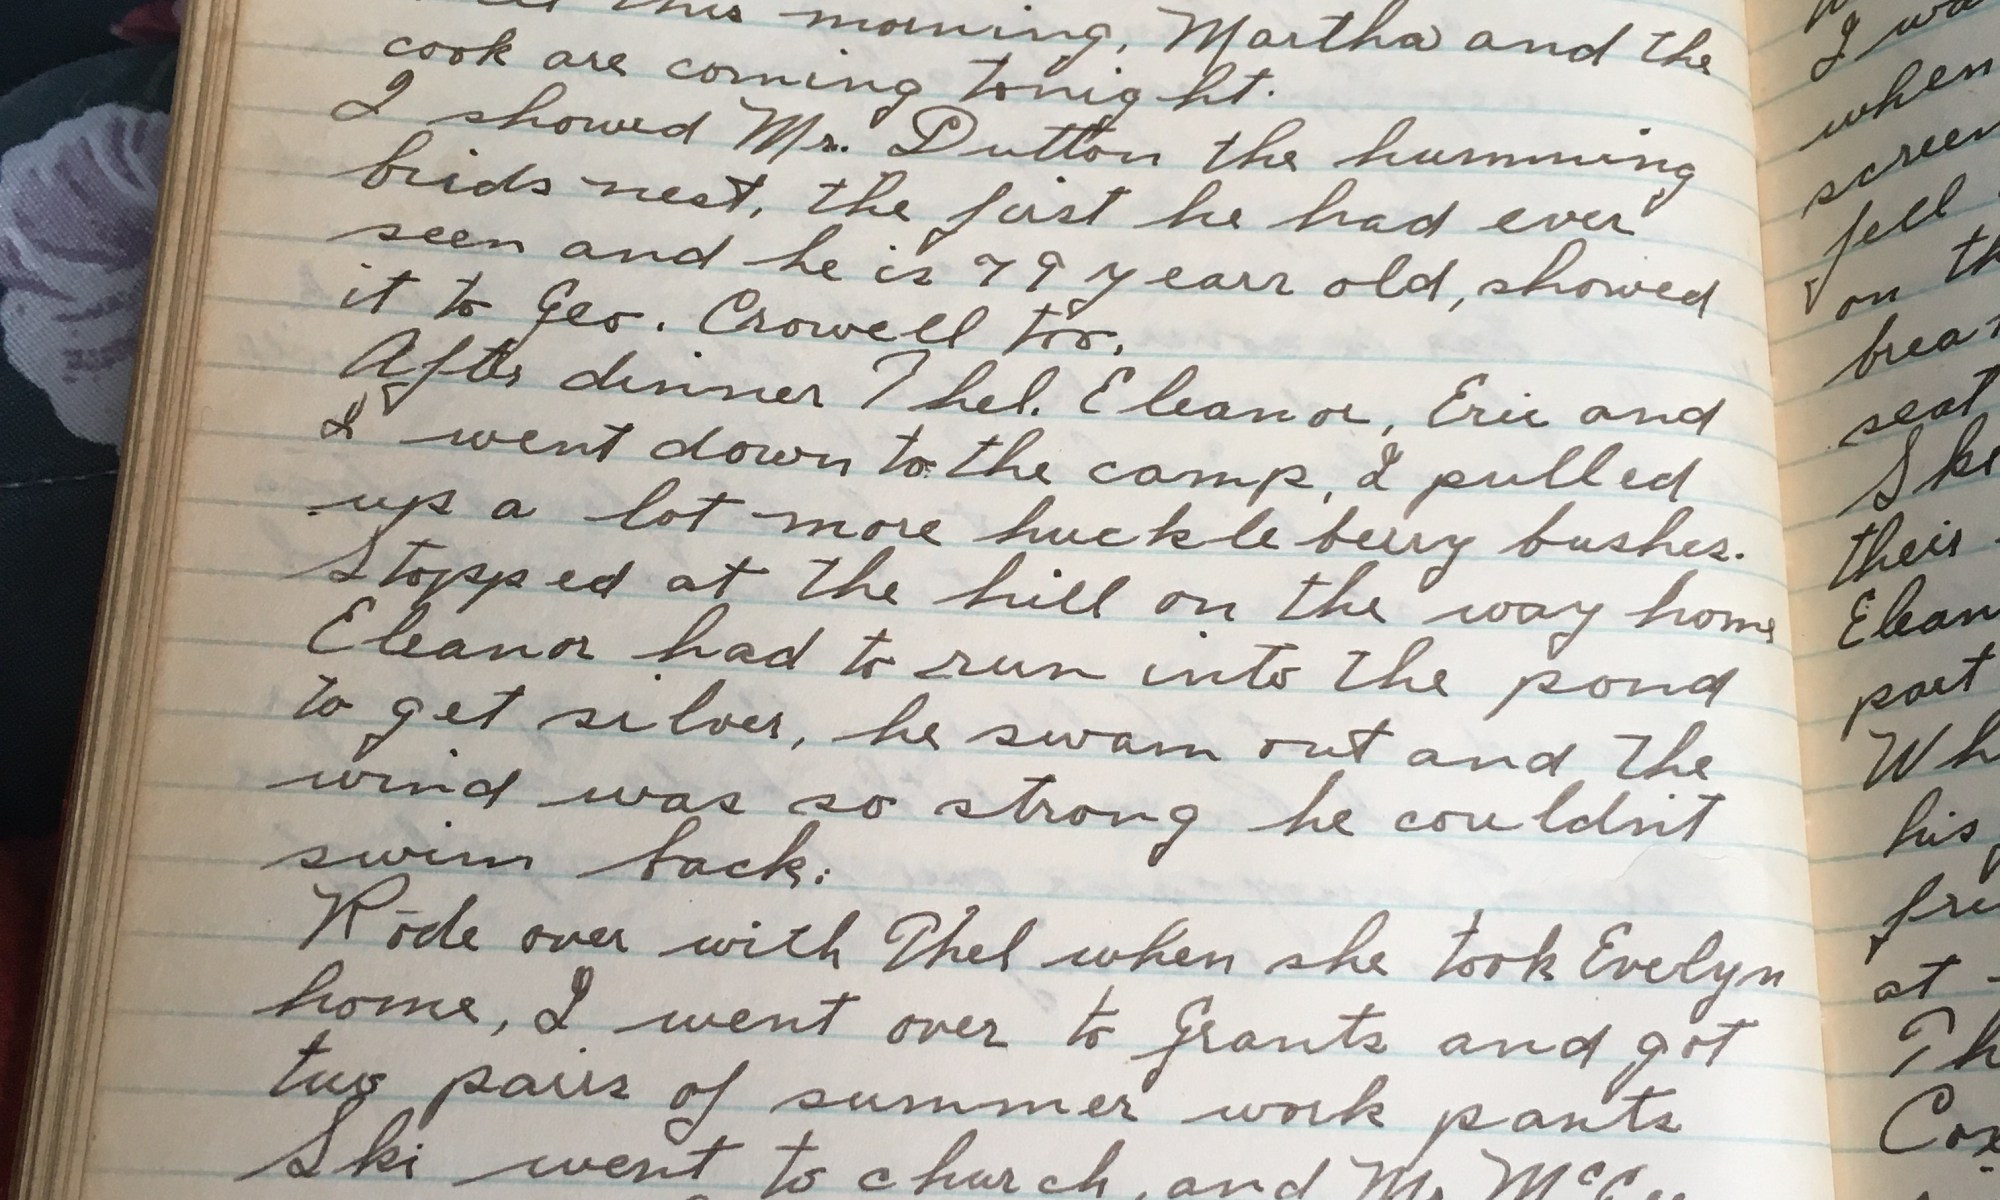 this morning, Martha and the
cook are coming tonight.
I showed Mr. Dutton the humming
birds nest, the first he had ever
seen and he is 79 years old, showed
it to Geo. Crowell too.
After dinner Thel. Eleanor, Eric and
I went down to the camp, I pulled
up a lot more huckle berry bushes.
Stopped at the hill on the way home
Eleanor had to run into the pond
to get silver, he swam out and the
wind was so strong he couldn't
swim back.
Rode over with Thel when she took Evelyn
home, I went over to Grants and got
two pairs of summer work pants
Ski went to church, and Mr
I
when
screen
fell
on
seat
Ski
their
Elean
part
Wh
his
at
Th